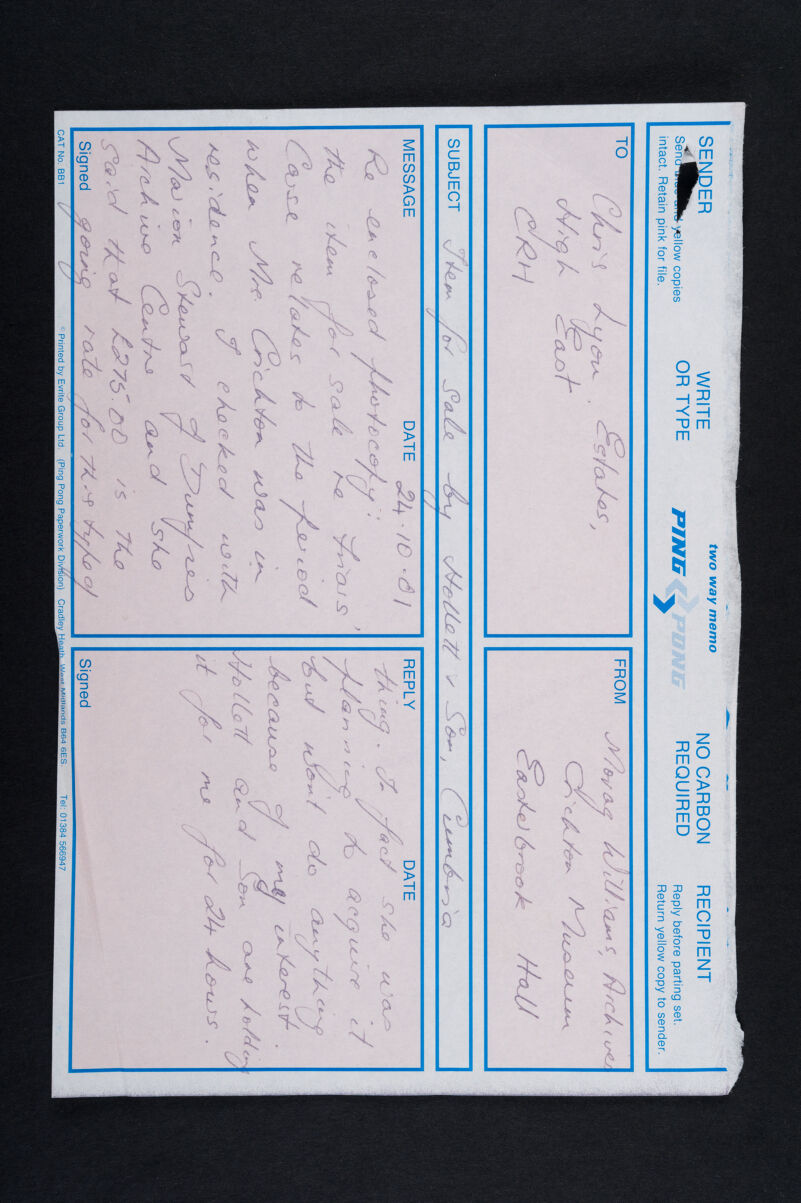 SENDER
Send and yellow copies
intact. Retain pink for file.
WRITE
OR TYPE
two way memo
PING PONG
NO CARBON
REQUIRED
RECIPIENT
Reply before parting set.
Return yellow copy to sender.
TO
Chris Lyon, Estates,
High East
CRH
FROM
Morag Williams, Archives
Crichton Museum
Easterbrook Hall
SUBJECT Item for Sale by Hollett & Son, Cumbria
MESSAGE
DATE 24.10.01
Re enclosed photocopy:
the item for sale re Friars'
Carse relates to the period
when Mrs Crichton was in
residence. I checked with
Marion Stewart of Dumfries
Archive Centre and she
said that £275.00 is the
going rate for this type of
Signed
REPLY
DATE
thing. In fact she was
planning to acquire it
but won't do anything
because of my interest.
Hollett and Son are holding
it for me for 24 hours.
Signed
CAT No. BB1
© Printed by Evrite Group Ltd. (Ping Pong Paperwork Division) Cradley Heath, West Midlands B64 6ES. Tel: 01384 566947